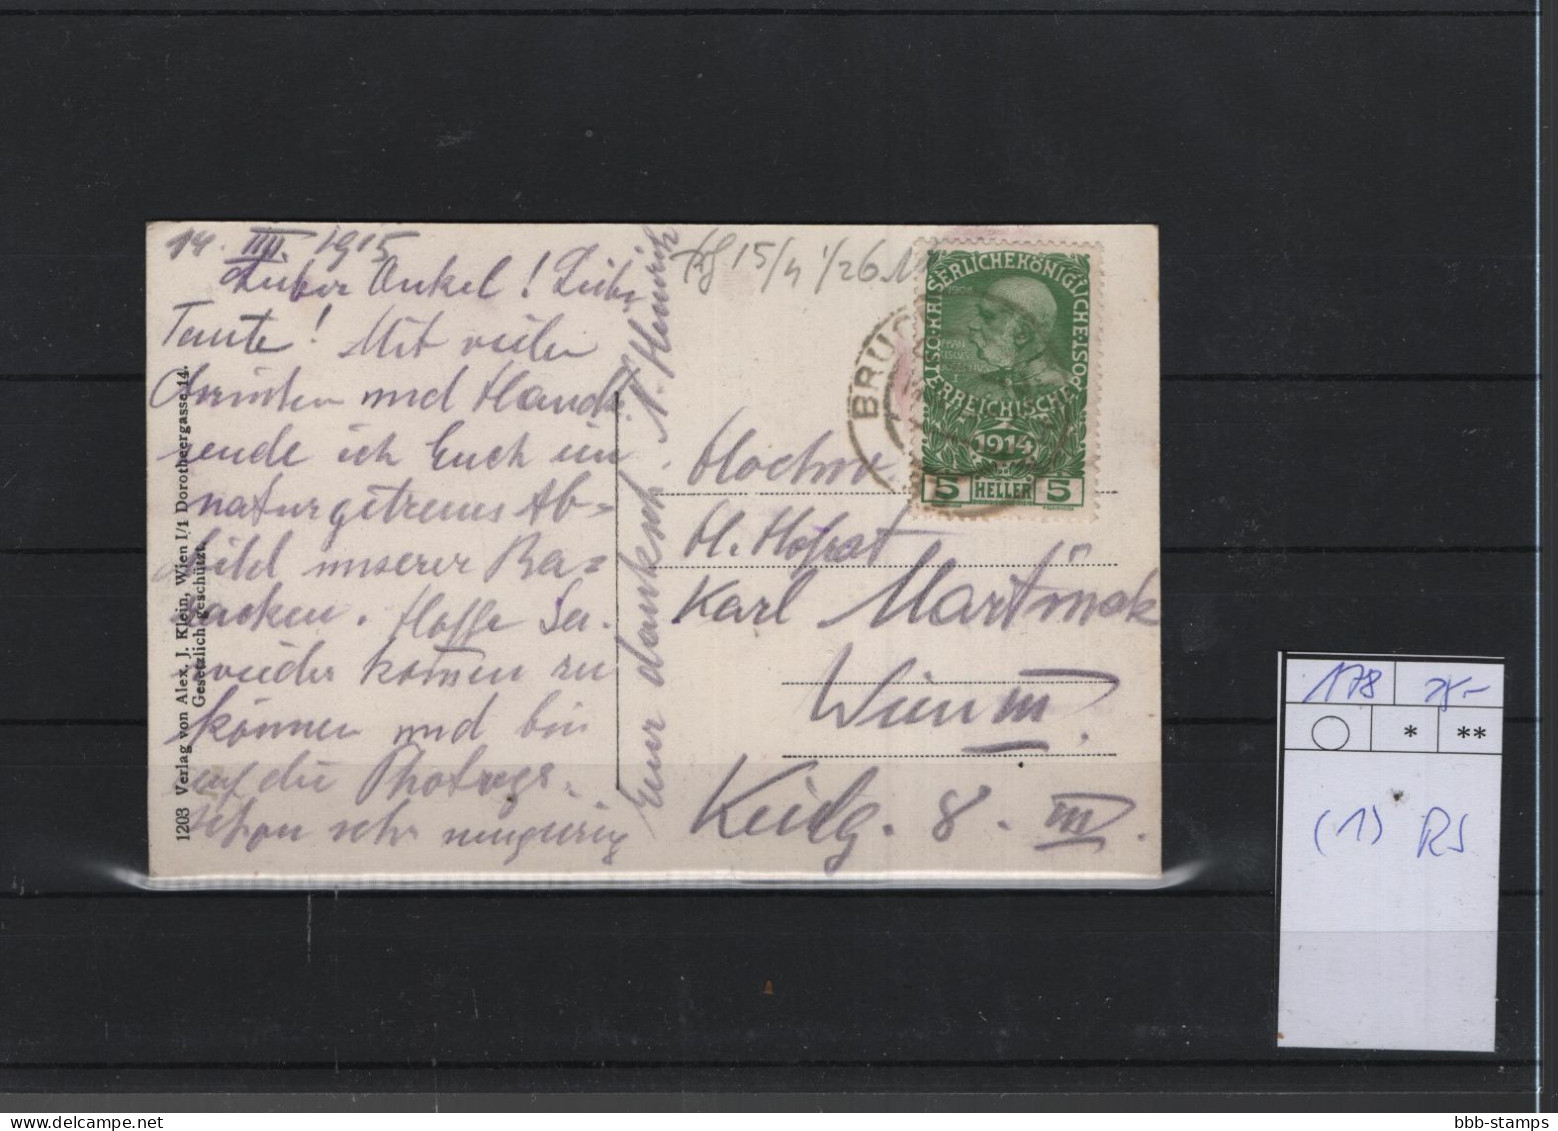 14. IIII. 1915
Lieber Onkel! Liebe
Tante! Mit vielen
und Handk.
sende ich Euch ein
naturgetreues Ab=
bild unserer Ba=
racken. Hoffe Sie
wieder kommen zu
können und bin
auf die Photogr.
schon sehr neugierig
Euer dankсh. N. Heinrich
1203 Verlag von Alex. J. Klein, Wien I/1 Dorotheergasse 14.
Gesetzlich geschützt.
15/4 1/26
BRUCK
KAISERLICHE KÖNIGLICHE
ÖSTERREICHISCHE POST
1914
5 HELLER 5
Hochw
H. Hofrat
Karl Martinak
Wien III.
Keilg. 8. III.
178
* **
(1) RS
bbb-stamps